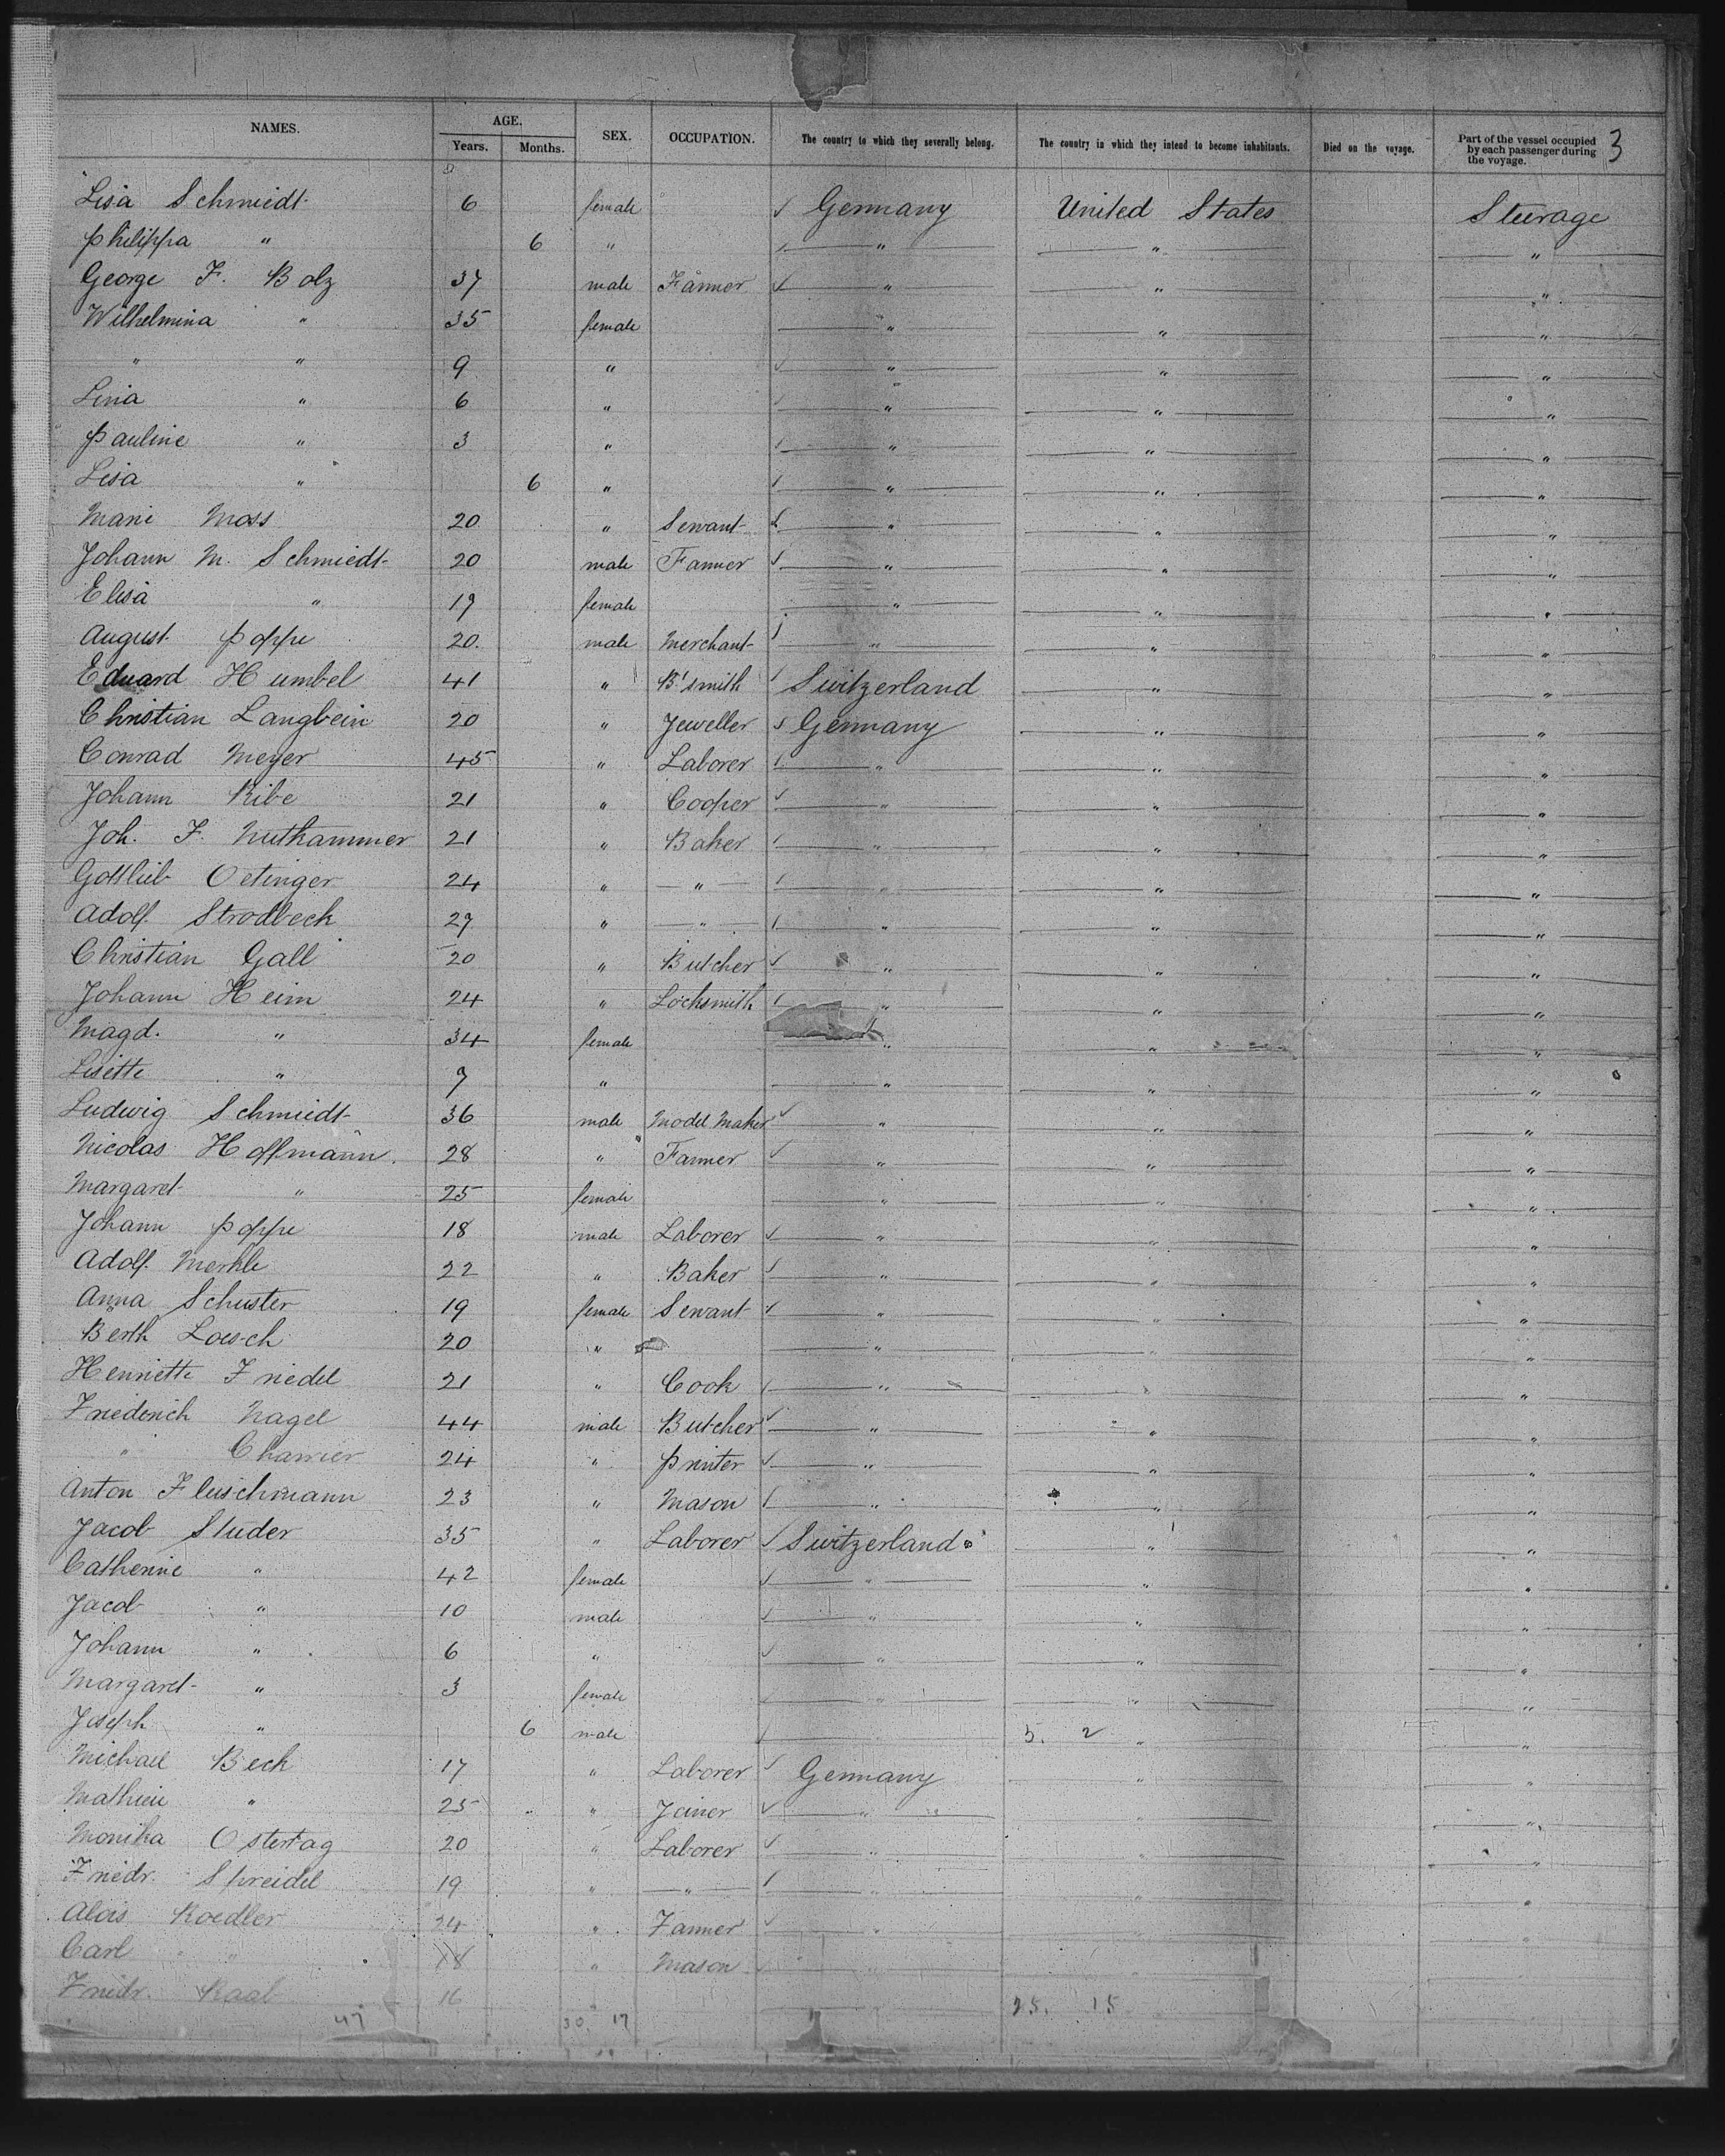 3
NAMES. AGE. Years. Months. SEX. OCCUPATION. The country to which they severally belong. The country in which they intend to become inhabitants. Died on the voyage. Part of the vessel occupied by each passenger during the voyage.
Lisa Schmiedt 6 female Germany United States Steerage
Philippa " 6 " " " "
George F. Bolz 37 male Farmer " " "
Wilhelmina " 35 female " " "
" " 9 " " " "
Lina " 6 " " " "
Pauline " 3 " " " "
Lisa " 6 " " " "
Marie Moss 20 " Servant " " "
Johann M. Schmiedt 20 male Farmer " " "
Elisa " 19 female " " "
August Poppe 20. male Merchant " " "
Eduard Humbel 41 " Bl smith Switzerland " "
Christian Langbein 20 " Jeweller Germany " "
Conrad Meyer 45 " Laborer " " "
Johann Ribe 21 " Cooper " " "
Joh. F. Huthammer 21 " Baker " " "
Gottlieb Oetinger 24 " " " " "
Adolf Strodbeck 27 " " " " "
Christian Gall 20 " Butcher " " "
Johann Heim 24 " Locksmith " " "
Magd. " 34 female " " "
Lisette " 7 " " " "
Ludwig Schmiedt 36 male Model Maker " " "
Nicolas Hoffmann. 28 " Farmer " " "
Margaret " 25 female " " "
Johann Poppe 18 male Laborer " " "
Adolf Merkle 22 " Baker " " "
Anna Schuster 19 female Servant " " "
Berth Loesch 20 " " " "
Henriette Friedel 21 " Cook " " "
Friederich Nagel 44 male Butcher " " "
" Charrier 24 " Printer " " "
Anton Fleischmann 23 " Mason " " "
Jacob Studer 35 " Laborer Switzerland " "
Catherine " 42 female " " "
Jacob " 10 male " " "
Johann " 6 " " " "
Margaret " 3 female " " "
Joseph " 6 male 5. 2 " "
Michael Beck 17 " Laborer Germany " "
Mathieu " 25 " Joiner " " "
Monika Ostertag 20 " Laborer " " "
Friedr. Spreidel 19 " " " " "
Alois Roedler 24 " Farmer " " "
Carl " 18 " Mason " "
Friedr. Raal 16 "
47 30. 17 25. 15